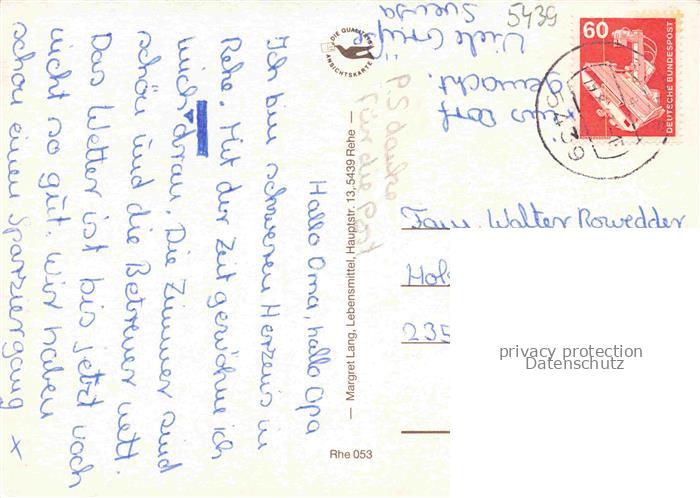 Hallo Oma, hallo Opa
Ich bin schweren Herzens in
Rehe. Mit der Zeit gewöhne ich
mich dran. Die Zimmer sind
schön und die Betreuer nett.
Das Wetter ist bis jetzt noch
nicht so gut. Wir haben
schon einen Sparziergang x
ins Dorf
gemacht.
Viele Grüße
Svenja
P.S danke
für die Post
DIE QUALITÄTS
ANSICHTSKARTE
— Margret Lang, Lebensmittel, Hauptstr. 13, 5439 Rehe —
Rhe 053
5439
60
DEUTSCHE BUNDESPOST
5439
Fam. Walter Rowedder
Hols
235
privacy protection
Datenschutz